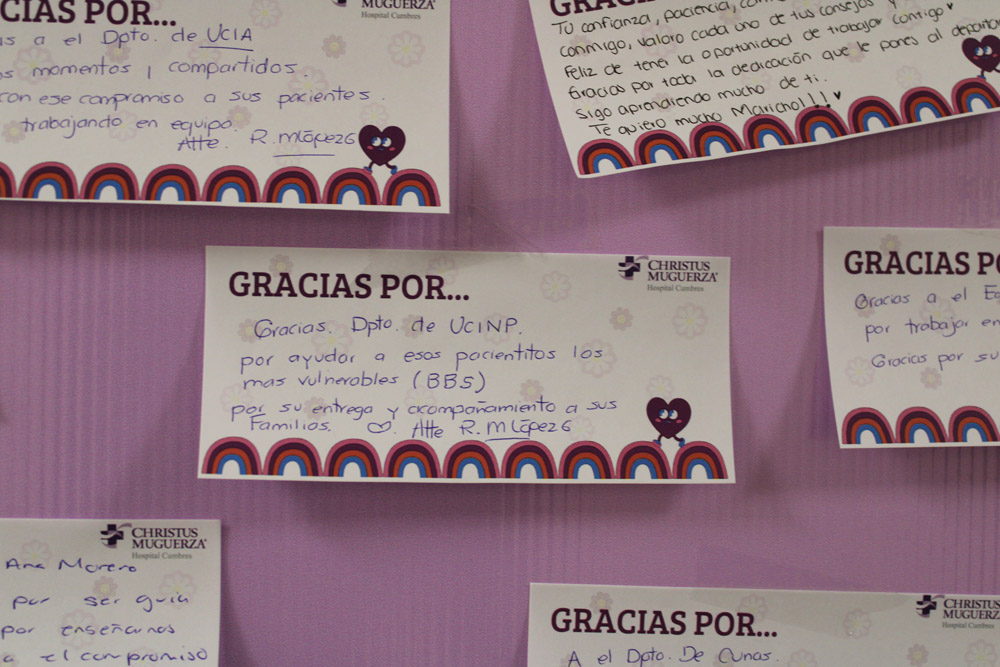 CIAS POR...
Hospital Cumbres
a el Dpto. de UCIA
momentos y compartidos.
con ese compromiso a sus pacientes.
trabajando en equipo.
Atte. R. MLópezG
GRAC
Tu confianza, paciencia,
conmigo, valoro cada uno de tus consejos y
Feliz de tener la oportunidad de trabajar contigo
Gracias por toda la dedicación que le pones al
Sigo aprendiendo mucho de ti.
Te quiero mucho Marichol!!!
GRACIAS POR...
CHRISTUS
MUGUERZA
Hospital Cumbres
Gracias. Dpto. de UCINP.
por ayudar a esos pacientitos los
mas vulnerables (BBS)
por su entrega y acompañamiento a sus
Familias. Atte R. MLópezG
GRACIAS PO
Gracias a el
por trabajar en
Gracias por su
CHRISTUS
MUGUERZA
Hospital Cumbres
Ana Moreno
por ser guia
por enseñarnos
a el compromiso
GRACIAS POR...
CHRISTUS
MUGUERZ
Hospital Cumbres
A el Dpto. De Cunas.